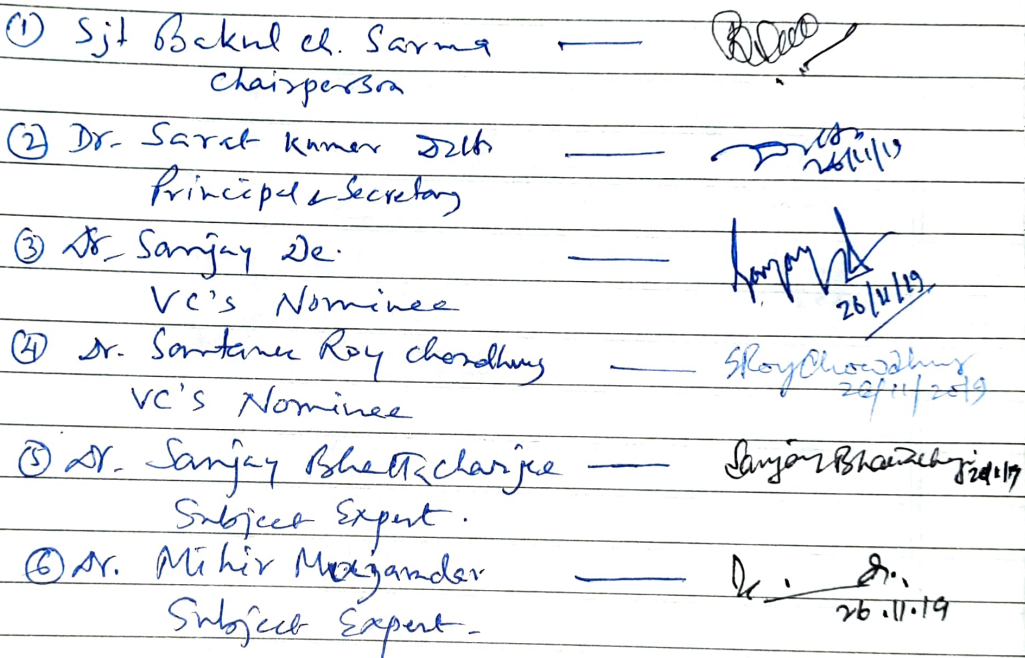 ① Sjt Bakul ch. Sarma —
Chairperson
② Dr. Sarat Kumar Dutta — 26/11/19
Principal & Secretary
③ Dr. Sanjay De. — Sanjay De
VC's Nominee 26/11/19
④ Dr. Santanu Roy Choudhury — SRoyChowdhury
VC's Nominee 26/11/2019
⑤ Dr. Sanjay Bhattacharjee — Sanjay Bhattacharji
Subject Expert.
⑥ Dr. Mihir Mazumdar —
Subject Expert - 26.11.19